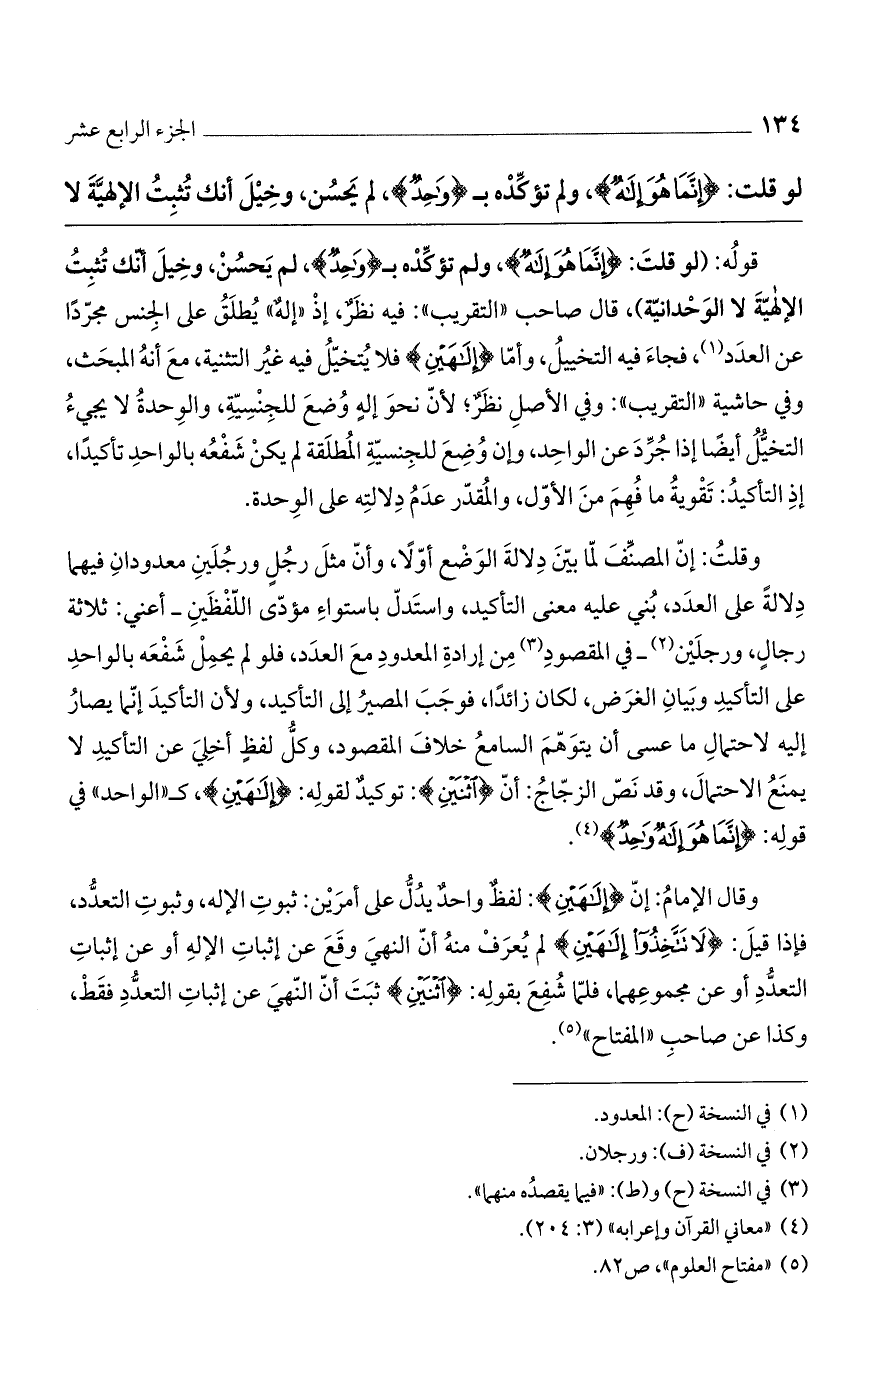 ١٣٤ الجزء الرابع عشر
لو قلت: ﴿إِنَّمَا هُوَ إِلَٰهٌ﴾، ولم تؤكِّدْه بـ ﴿وَٰحِدٌ﴾، لم يَحسُن، وخِيْلَ أنك تُثبِتُ الإلهيَّةَ لا
قولُه: (لو قلتَ: ﴿إِنَّمَا هُوَ إِلَٰهٌ﴾، ولم تؤكِّدْه بـ﴿وَٰحِدٌ﴾، لم يَحسُنْ، وخيلَ أنّك تُثبِتُ
الإلٰهيّةَ لا الوَحْدانيّة)، قال صاحب «التقريب»: فيه نظَرٌ، إذْ «إلهٌ» يُطلَقُ على الجِنس مجرّدًا
عن العدَد(١)، فجاءَ فيه التخييلُ، وأمّا ﴿إِلَٰهَيْنِ﴾ فلا يُتخيّلُ فيه غيرُ التثنية، معَ أنهُ المبحَث،
وفي حاشية «التقريب»: وفي الأصلِ نظَرٌ؛ لأنّ نحوَ إلهٍ وُضعَ للجِنْسِيّةِ، والوِحدةُ لا يجيءُ
التخيُّلُ أيضًا إذا جُرِّدَ عن الواحِد، وإن وُضِعَ للجنسيّةِ المُطلَقة لم يكنْ شَفْعُه بالواحدِ تأكيدًا،
إذِ التأكيدُ: تَقْويةُ ما فُهِمَ منَ الأوّل، والمُقدّر عدَمُ دِلالتِه على الوِحدة.
وقلتُ: إنّ المصنِّفَ لمّا بيّنَ دِلالةَ الوَضْع أوّلًا، وأنّ مثلَ رجُلٍ ورجُلَينِ معدودانِ فيهما
دِلالةً على العدَد، بُني عليه معنى التأكيد، واستَدلّ باستواءِ مؤدّى اللّفْظَينِ ـ أعني: ثلاثة
رجالٍ، ورجلَيْن(٢) ـ في المقصودِ(٣) مِن إرادةِ المعدودِ معَ العدَد، فلو لم يحمِلْ شَفْعَه بالواحدِ
على التأكيدِ وبَيانِ الغرَض، لكان زائدًا، فوجَبَ المصيرُ إلى التأكيد، ولأن التأكيدَ إنّما يصارُ
إليه لاحتمالِ ما عسى أن يتوَهّمَ السامعُ خلافَ المقصود، وكلُّ لفظٍ أخلِيَ عن التأكيدِ لا
يمنَعُ الاحتمالَ، وقد نَصّ الزجّاجُ: أنّ ﴿ٱثْنَيْنِ﴾: توكيدٌ لقولِه: ﴿إِلَٰهَيْنِ﴾، كـ«الواحد» في
قولِه: ﴿إِنَّمَا هُوَ إِلَٰهٌ وَٰحِدٌ﴾(٤).
وقال الإمامُ: إنّ ﴿إِلَٰهَيْنِ﴾: لفظٌ واحدٌ يدُلُّ على أمرَيْن: ثبوتِ الإله، وثبوتِ التعدُّد،
فإذا قيلَ: ﴿لَا تَتَّخِذُوٓا۟ إِلَٰهَيْنِ﴾ لم يُعرَفْ منهُ أنّ النهيَ وقَعَ عن إثباتِ الإلهِ أو عن إثباتِ
التعدُّدِ أو عن مجموعِهما، فلمّا شُفِعَ بقولِه: ﴿ٱثْنَيْنِ﴾ ثبَتَ أنّ النّهيَ عن إثباتِ التعدُّدِ فقَطْ،
وكذا عن صاحبِ «المفتاح»(٥).
(١) في النسخة (ح): المعدود.
(٢) في النسخة (ف): ورجلان.
(٣) في النسخة (ح) و(ط): «فيما يقصدُه منهما».
(٤) «معاني القرآن وإعرابه» (٣: ٢٠٤).
(٥) «مفتاح العلوم»، ص٨٢.